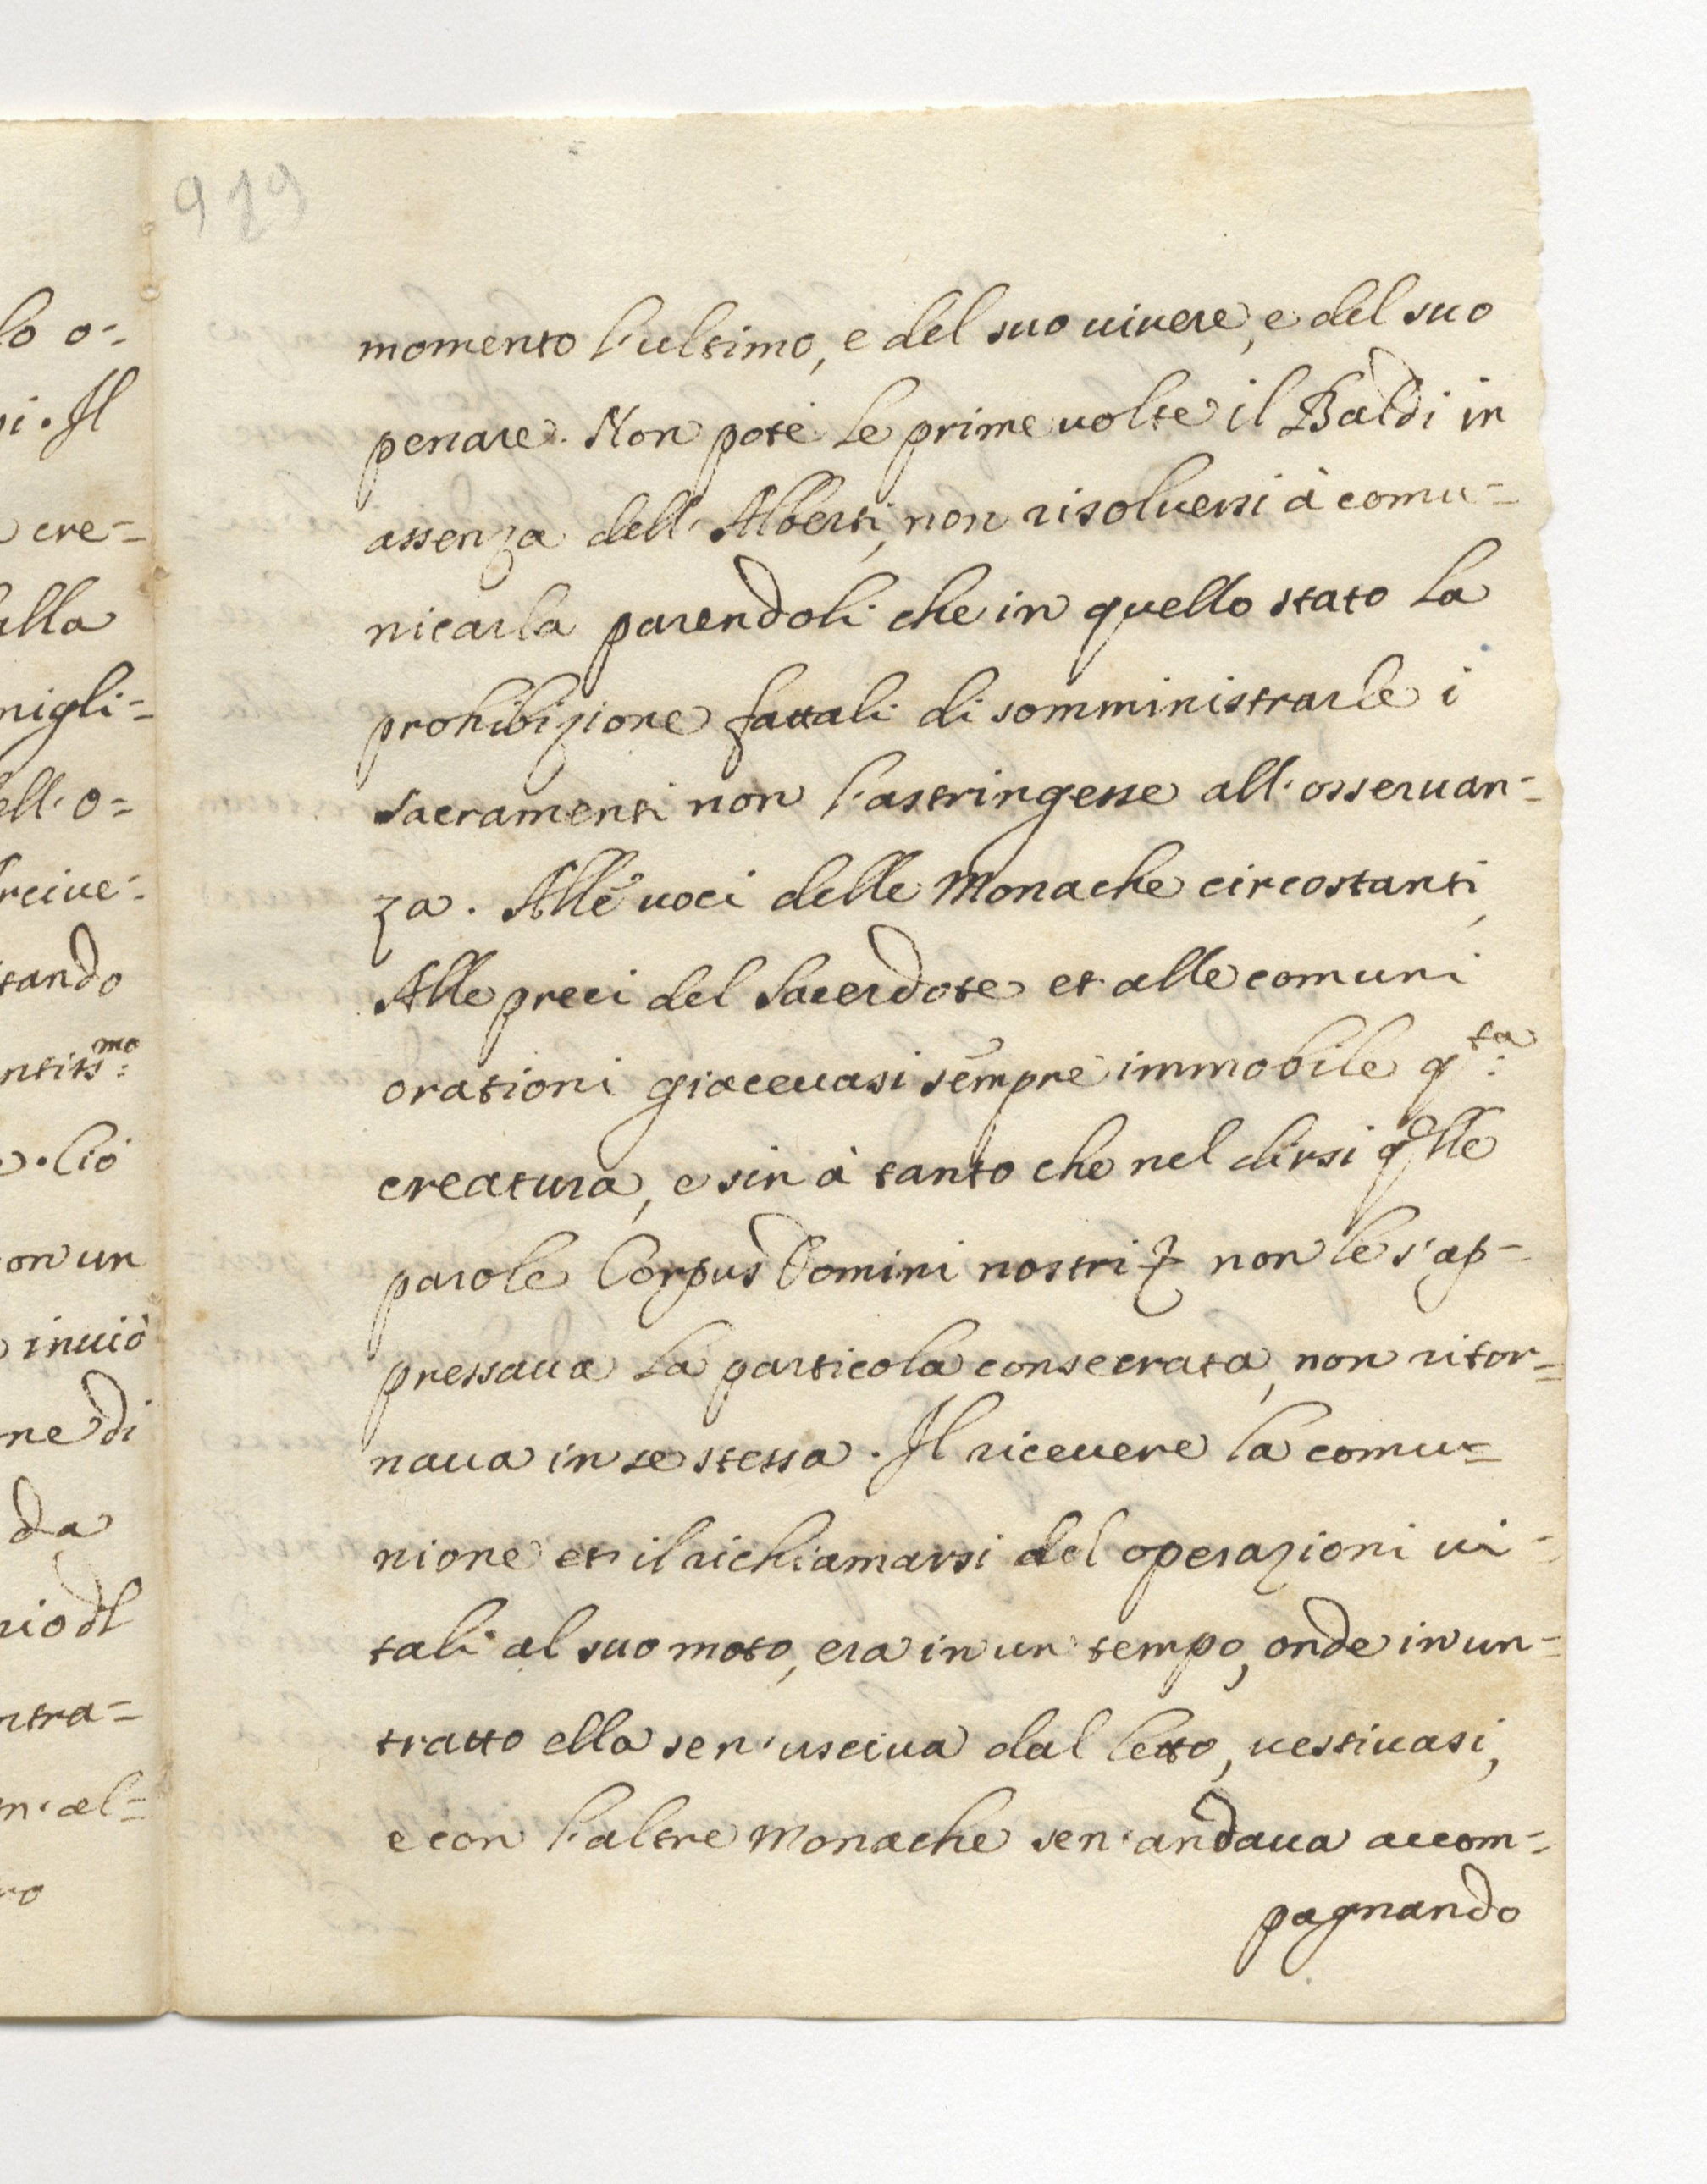 lo o-
i. Il
cre-
alla
migli-
ell'o-
reive-
tando
ntiss:mo
. Ciò
on un
inviò
ne di
da
rio dl
ntra-
n'al-
ro
929
momento l'ultimo, e del suo uiuere, e del suo
penare. Non potè le prime uolte il Baldi in
assenza dell'Alberti, non risoluersi à comu-
nicarla parendoli che in quello stato la
prohibizione fattali di somministrarle i
sacramenti non l'astringesse all'osseruan-
za. Alle uoci delle Monache circostanti,
Alle preci del Sacerdote et alle comuni
orationi giaceuasi sempre immobile q:ta
creatura, e sin à tanto che nel dirsi qlle
parole Corpus Domini nostri & non le s'ap-
pressaua la particola consecrata, non ritor-
naua in se stessa. Il riceuere la comu-
nione et il richiamarsi del operazioni ui-
tali al suo moto, era in un tempo, onde in un-
tratto ella sen'usciua dal letto, uestiuasi,
e con l'altre Monache sen'andaua accom-
pagnando